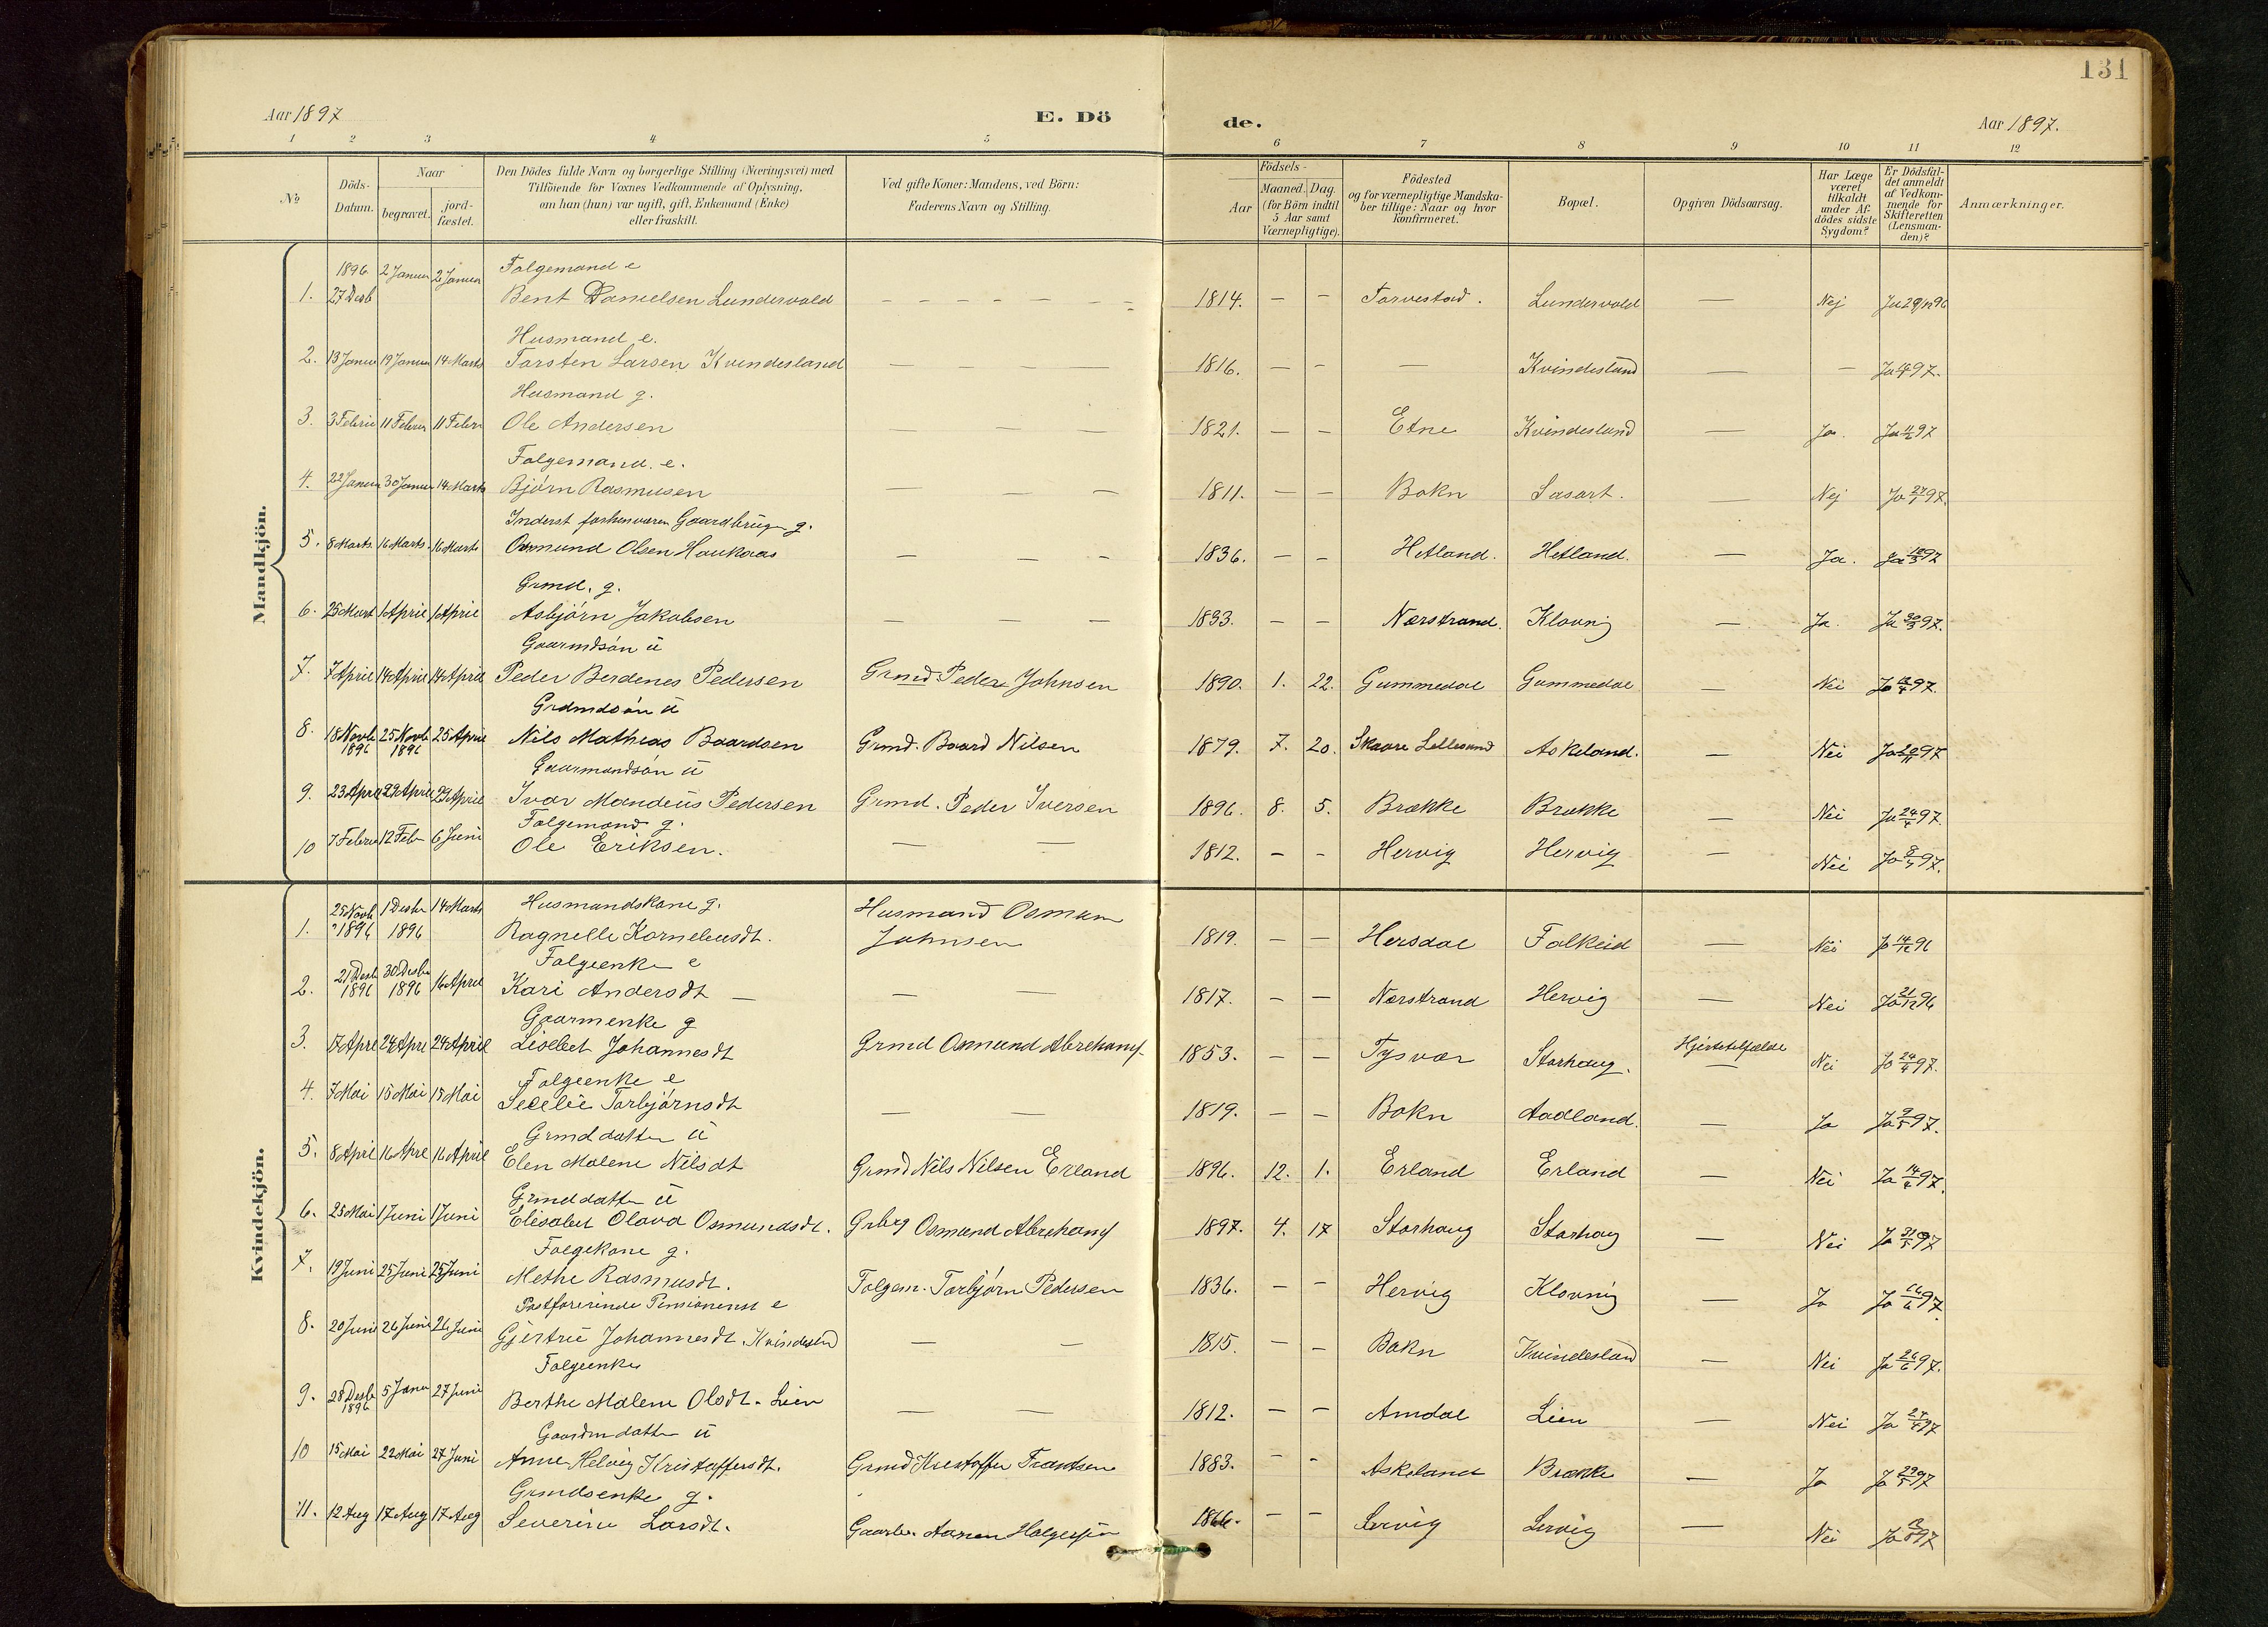 131
Aar 1897
E. Dö
de.
Aar 1897.
1 2 3 4 5 6 7 8 9 10 11 12
No
Döds-Datum.
Naar
begravet.
jord-fæstet.
Den Dödes fulde Navn og borgerlige Stilling (Næringsvei) med
Tilföiende for Voxnes Vedkommende af Oplysning,
om han (hun) var ugift, gift, Enkemand (Enke)
eller fraskilt.
Ved gifte Koner: Mandens, ved Börn:
Faderens Navn og Stilling.
Födsels-
Aar
Maaned. Dag.
(for Börn indtil
5 Aar samt
Værnepligtige).
Födested
og for værnepligtige Mandska-
ber tillige: Naar og hvor
konfirmeret.
Bopæl.
Opgiven Dödsaarsag.
Har Læge
været
tilkaldt
under Af-
dödes sidste
Sygdom?
Er Dödsfal-
det anmeldt
af Vedkom-
mende for
Skifteretten
(Lensman-
den)?
Anmærkninger.
Mandkjön.
1896 2 Januar 2 Januar Folgemand e
1. 27 Desb Bent Danielsen Lundervold – – – 1814. – – Torvestad. Lundervold — Nej Ja 29/12 96
Husmand e.
2. 13 Januar 19 Januar 14 Marts Torsten Larsen Kvindesland — — 1816. – – — Kvindesland — — Ja 97.
Husmand g.
3. 3 Februar 11 Februar 11 Febr Ole Andersen — — 1821. – – Etne Kvindesland — Ja. Ja 97
Folgemand. e.
4. 22 Januar 30 Januar 14 Marts Bjørn Rasmusen — — 1811. – – Bokn — Nej Ja 27/1 97.
Inderst forhenværen Gaardbruger g.
5. 8 Marts 16 Marts. 16 Marts Osmund Olsen Haukaas — — 1836. – – Hetland. Hetland. — Ja. Ja 12/3 97
Grmd. g.
6. 25 Mart 1 April 1 April Asbjörn Jakobsen — — 1833. – – Nærstrand. Klovnig — Ja. Ja 30/3 97.
Gaarmdsön ü
7. 7 April 14 April 14 April Peder Berdenes Pedersen Grmd Peder Johnsen 1890. 1. 22. Gummedal Gummedal — Nei Ja 97.
Grdmdsön ü
8. 18 Novb 1896 25 Novb 1896 25 April Nils Mathias Baardsen Grmd. Baard Nilsen 1879. 7. 20. Skaare Askeland. — Nei Ja 97
Gaarmandsön ü
9. 23 Apr 29 April 29 April Ivar Mandeüs Pedersen Grmd. Peder Iversen 1896. 8. 5. Brække Brække — Nei Ja 24/4 97.
Folgemand g.
10 7 Februar 12 Feb 6 Juni Ole Eriksen. — — 1812. – – Hervig Hervig — Nei Ja 97.
Kvindekjön.
25 Novb 1 Desbr 14 Marts Husmandskone g. Husmand Osmun
1. 1896 1896 Ragnelle Korneliusdt. Johnsen 1819. – – Hersdal Falkeid — Nei Ja 14/12 96
Folgeenke e
2. 21 Desb 1896 30 Desbr 1896 16 April Kari Andersdt — — — 1817. – – Nærstrand Hervig — Nei Ja 31/12 96
Gaarmenke g
3. 17 Apr 24 Apr 24 April Lisebet Johannesdt Grmd Osmund Abrehams 1853. – – Tysvær Storhaug. Hjertetilfælde — Nei Ja 24/4 97.
Folgeenke e
4. 7 Mai 15 Mai 15 Mai Secelie Torbjörnsdt — — 1819. – – Bokn Aadland. — Ja Ja 9/5 97.
Grmddatter ü
5. 8 April 16 Apr 16 April Elen Malene Nilsdt Grmd Nils Nilsen Erland 1896. 12. 1. Erland Erland — Nei Ja 14/4 97.
Grmddatter ü
6. 25 Mai 1 Juni 1 Juni Elisabet Olava Osmundsdt. Grbrg Osmund Abrehams 1897. 4. 17 Storhaug Storhaug — Nei Ja 31/5 97
Folgekone g.
7. 19 Juni 25 Juni 25 Juni Methe Rasmusdt. Folgem. Torbjörn Pedersen 1836. – – Hervig Klovnig — Ja Ja 97.
Postförerinde Pensionerist e
8. 20 Juni 26 Juni 26 Juni Gjertrü Johannesdt. Kvindesland — — 1815. – – Bokn Kvindesland — Nei Ja 26/6 97.
Folgeenke
9. 28 Desb 1896 5 Janu 27 Juni Berthe Malene Olsdt. Lien — — 1812. – – Amdal Lien — Nei Ja 97
Gaardmdatter ü
10 15 Mai 22 Mai 27 Juni Anne Helvig Kristoffersdt. Grmd Kristoffer Frantsen 1883. – – Askeland Brække — Ja Ja 29/5 97
Grmdsenke g.
11. 12 Aug 17 Aug 17 Aug Severine Larsdt. Gaarbr. Holgersen 1866. – – Lervig Lervig — Nei Ja 97